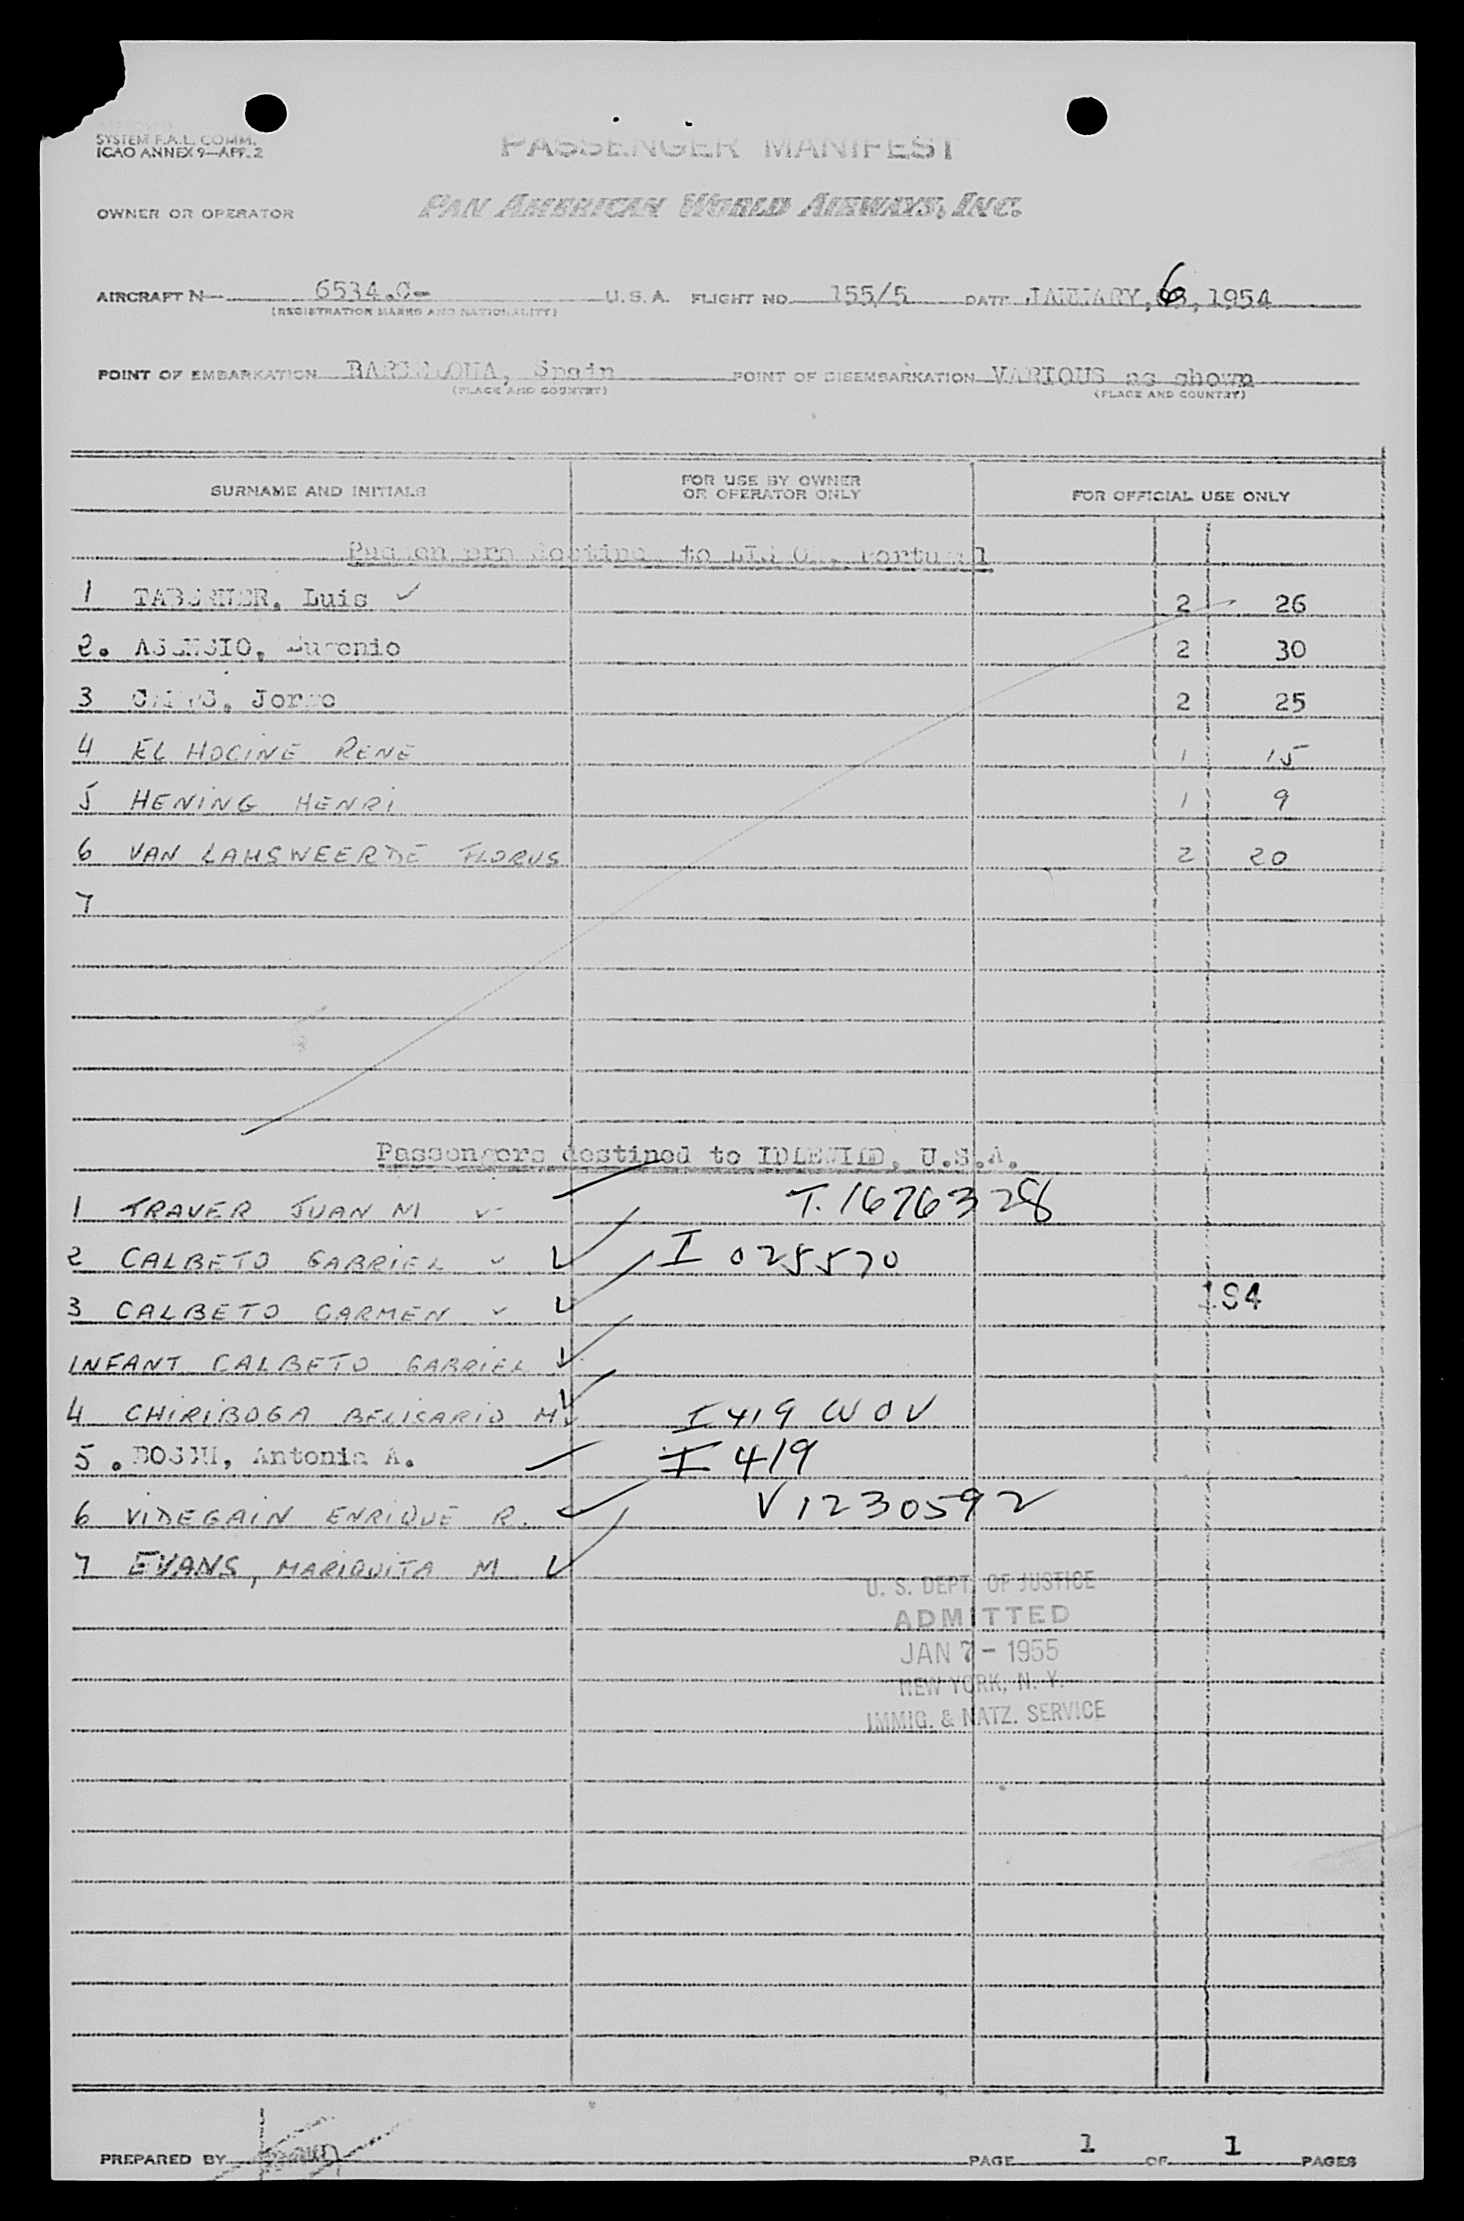 SYSTEM F.A.L. COMM.
ICAO ANNEX 9—APP. 2
PASSENGER MANIFEST
OWNER OR OPERATOR PAN AMERICAN WORLD AIRWAYS, INC.
AIRCRAFT N— 6534.C- U.S.A. FLIGHT NO. 155/5 DATE JANUARY, 6, 1954
(REGISTRATION MARKS AND NATIONALITY)
POINT OF EMBARKATION BARCELONA, Spain POINT OF DISEMBARKATION VARIOUS as shown
(PLACE AND COUNTRY) (PLACE AND COUNTRY)
SURNAME AND INITIALS FOR USE BY OWNER OR OPERATOR ONLY FOR OFFICIAL USE ONLY
Passengers destined to LISBON, Portugal
1 TABERNER, Luis ✓ 2 26
2. ASENSIO, Eugenio 2 30
3 Jorge 2 25
4 EL HOCINE RENE 1 15
5 HENING HENRI 1 9
6 VAN LAMSWEERDE FLORUS 2 20
7
Passengers destined to IDLEWILD, U.S.A.
1 TRAVER JUAN M ✓ T. 1676328
2 CALBETO GABRIEL ✓ ✓ I 025570
3 CALBETO CARMEN ✓ ✓ 194
INFANT CALBETO GABRIEL ✓
4 CHIRIBOGA BELISARIO M ✓ I 419 WOV
5. Antonia A. I 419
6 VIDEGAIN ENRIQUE R. ✓ V1230592
7 EVANS, MARIQUITA M ✓
U. S. DEPT. OF JUSTICE
ADMITTED
JAN 7 - 1955
NEW YORK, N. Y.
IMMIG. & NATZ. SERVICE
PREPARED BY PAGE 1 OF 1 PAGES